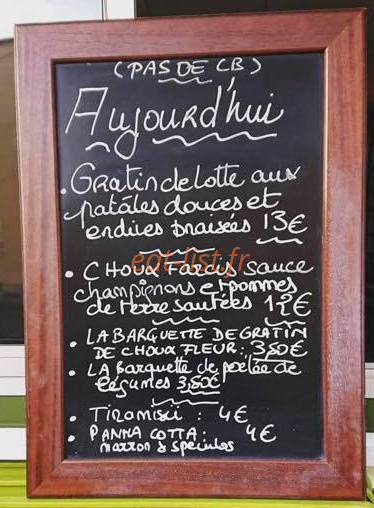 (PAS DE CB)
Aujourd'hui
. Gratin de lotte aux
patates douces et
endives braisées 13€
. CHOUX FARCIS, sauce
champignons et pommes
de terre sautées 12€
. LA BARQUETTE DE GRATIN
DE CHOUX FLEUR : 3,50€
. LA Barquette de poêlée de
légumes 3,50€
. TIRAMISU : 4€
. PANNA COTTA : 4€
marron & spéculos
eat-list.fr